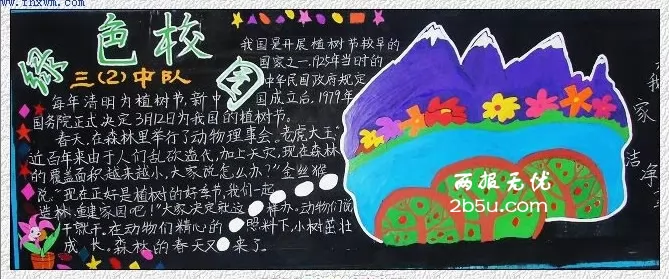 www.fhxwm.com
绿色校园
三(2)中队
我国是开展植树节较早的
国家之一,1925年当时的
中华民国政府规定
每年清明为植树节,新中
国成立后,1979年
国务院正式决定3月12日为我国的植树节。
春天,在森林里举行了动物理事会。老虎大王:
近百年来由于人们乱砍滥伐,加上天灾,现在森林
的覆盖面积越来越小,大家说怎么办?"金丝猴
说:"现在正好是植树的好季节,我们一起
造林,重建家园吧!"大家决定就这样办。动物们说
干就干。在动物们精心的照料下,小树茁壮
成长。森林的春天又来了。
两报无优
2b5u.com
我
家
洁净